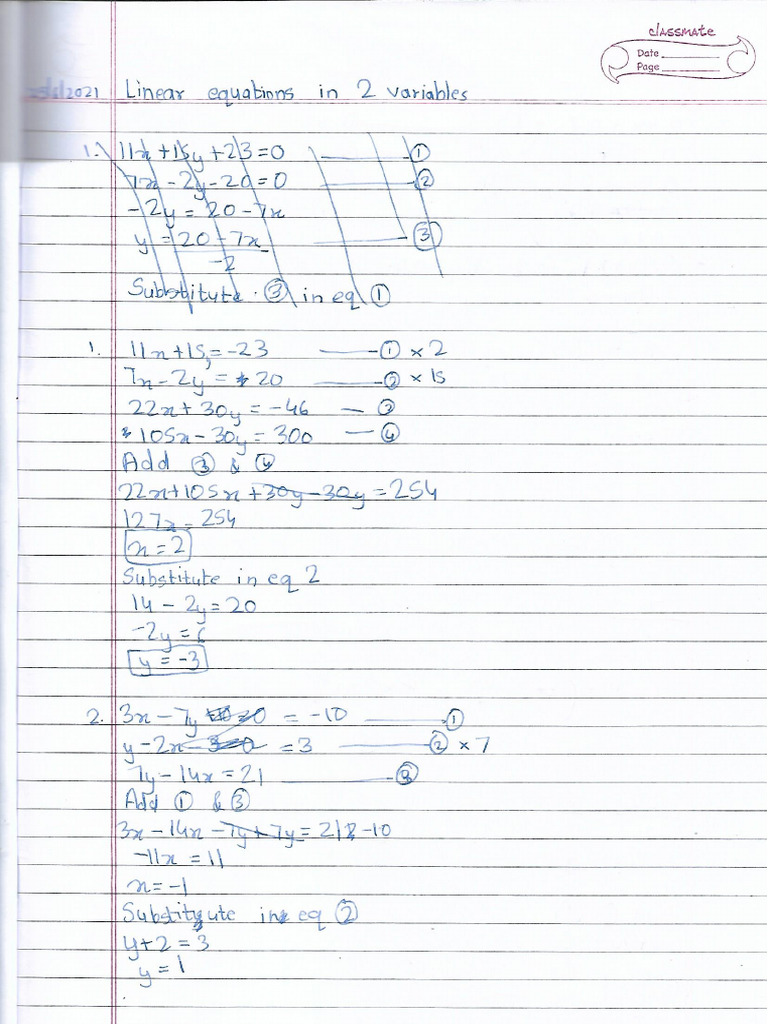 classmate
Date
Page
2021 Linear equations in 2 variables
1. 11x + 15y + 23 = 0 ——— ①
7x - 2y - 20 = 0 ——— ②
-2y = 20 - 7x
y = 20 - 7x ——— ③
-2
Substitute ③ in eq ①
1. 11x + 15y = -23 ——— ① × 2
7x - 2y = 20 ——— ② × 15
22x + 30y = -46 — ③
105x - 30y = 300 — ④
Add ③ & ④
22x + 105x + 30y - 30y = 254
127x = 254
x = 2
Substitute in eq 2
14 - 2y = 20
-2y = 6
y = -3
2. 3x - 7y +10=0 = -10 ——— ①
y - 2x - 3=0 = 3 ——— ② × 7
7y - 14x = 21 ——— ③
Add ① & ③
3x - 14x - 7y + 7y = 21 - 10
-11x = 11
x = -1
Substitute in eq ②
y + 2 = 3
y = 1